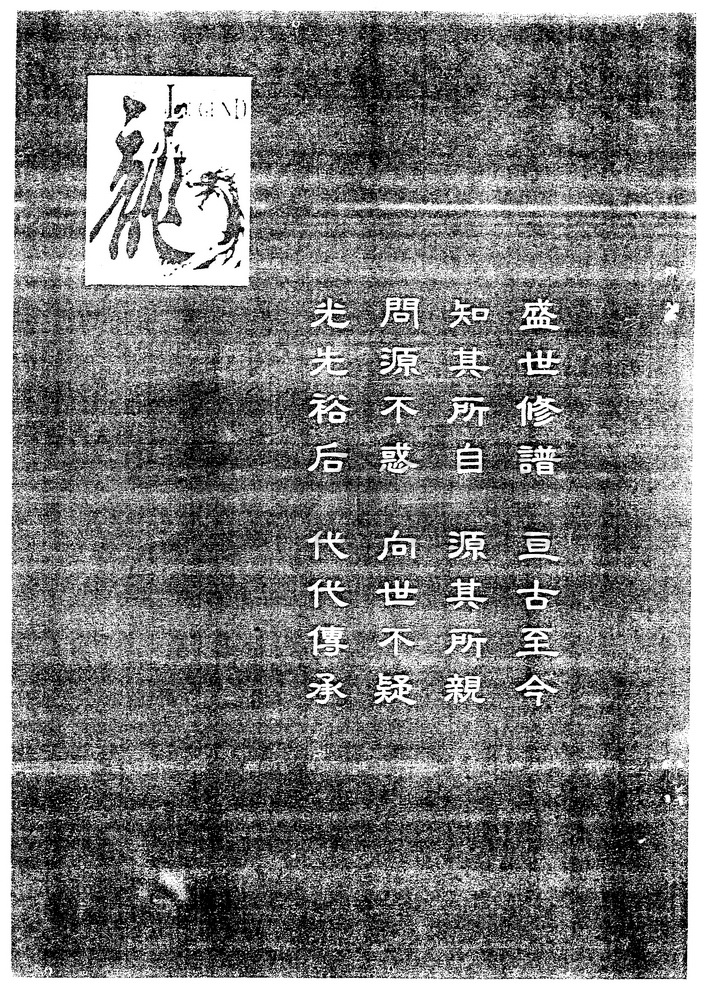 龍
LEGEND
盛世修譜 亘古至今
知其所自 源其所親
問源不惑 向世不疑
光先裕后 代代傳承